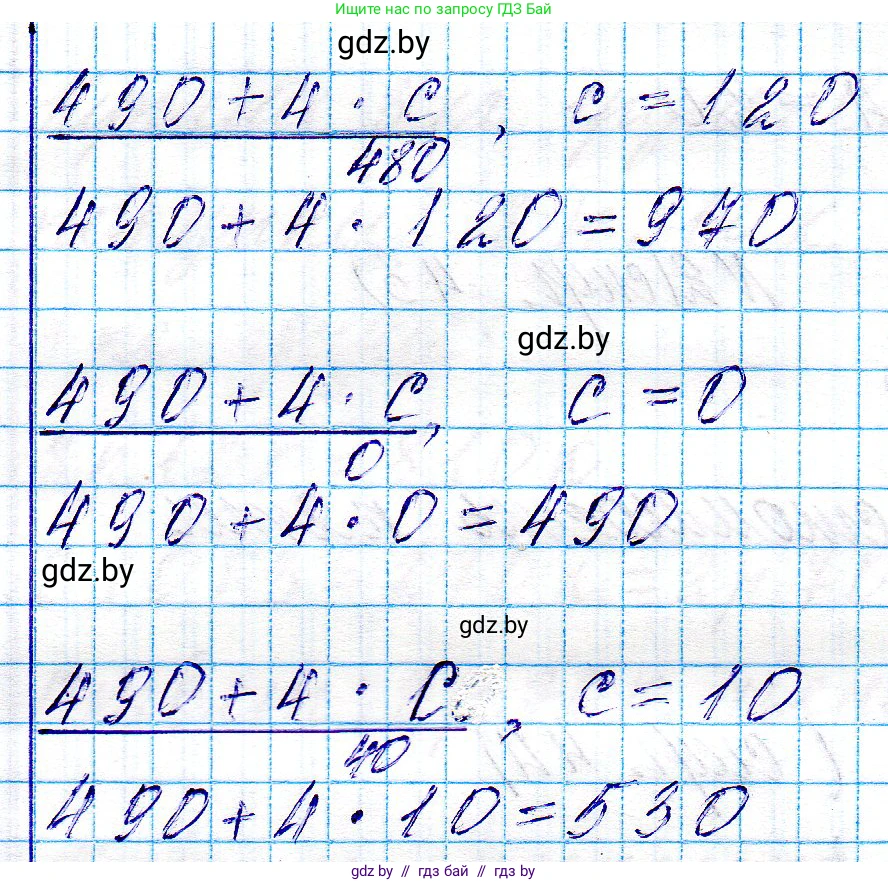 Ищите нас по запросу ГДЗ Бай
gdz.by
490 + 4 · c, c = 120
480
490 + 4 · 120 = 970
gdz.by
490 + 4 · c, c = 0
0
490 + 4 · 0 = 490
gdz.by
gdz.by
490 + 4 · c, c = 10
40
490 + 4 · 10 = 530
gdz.by // гдз бай // гдз by